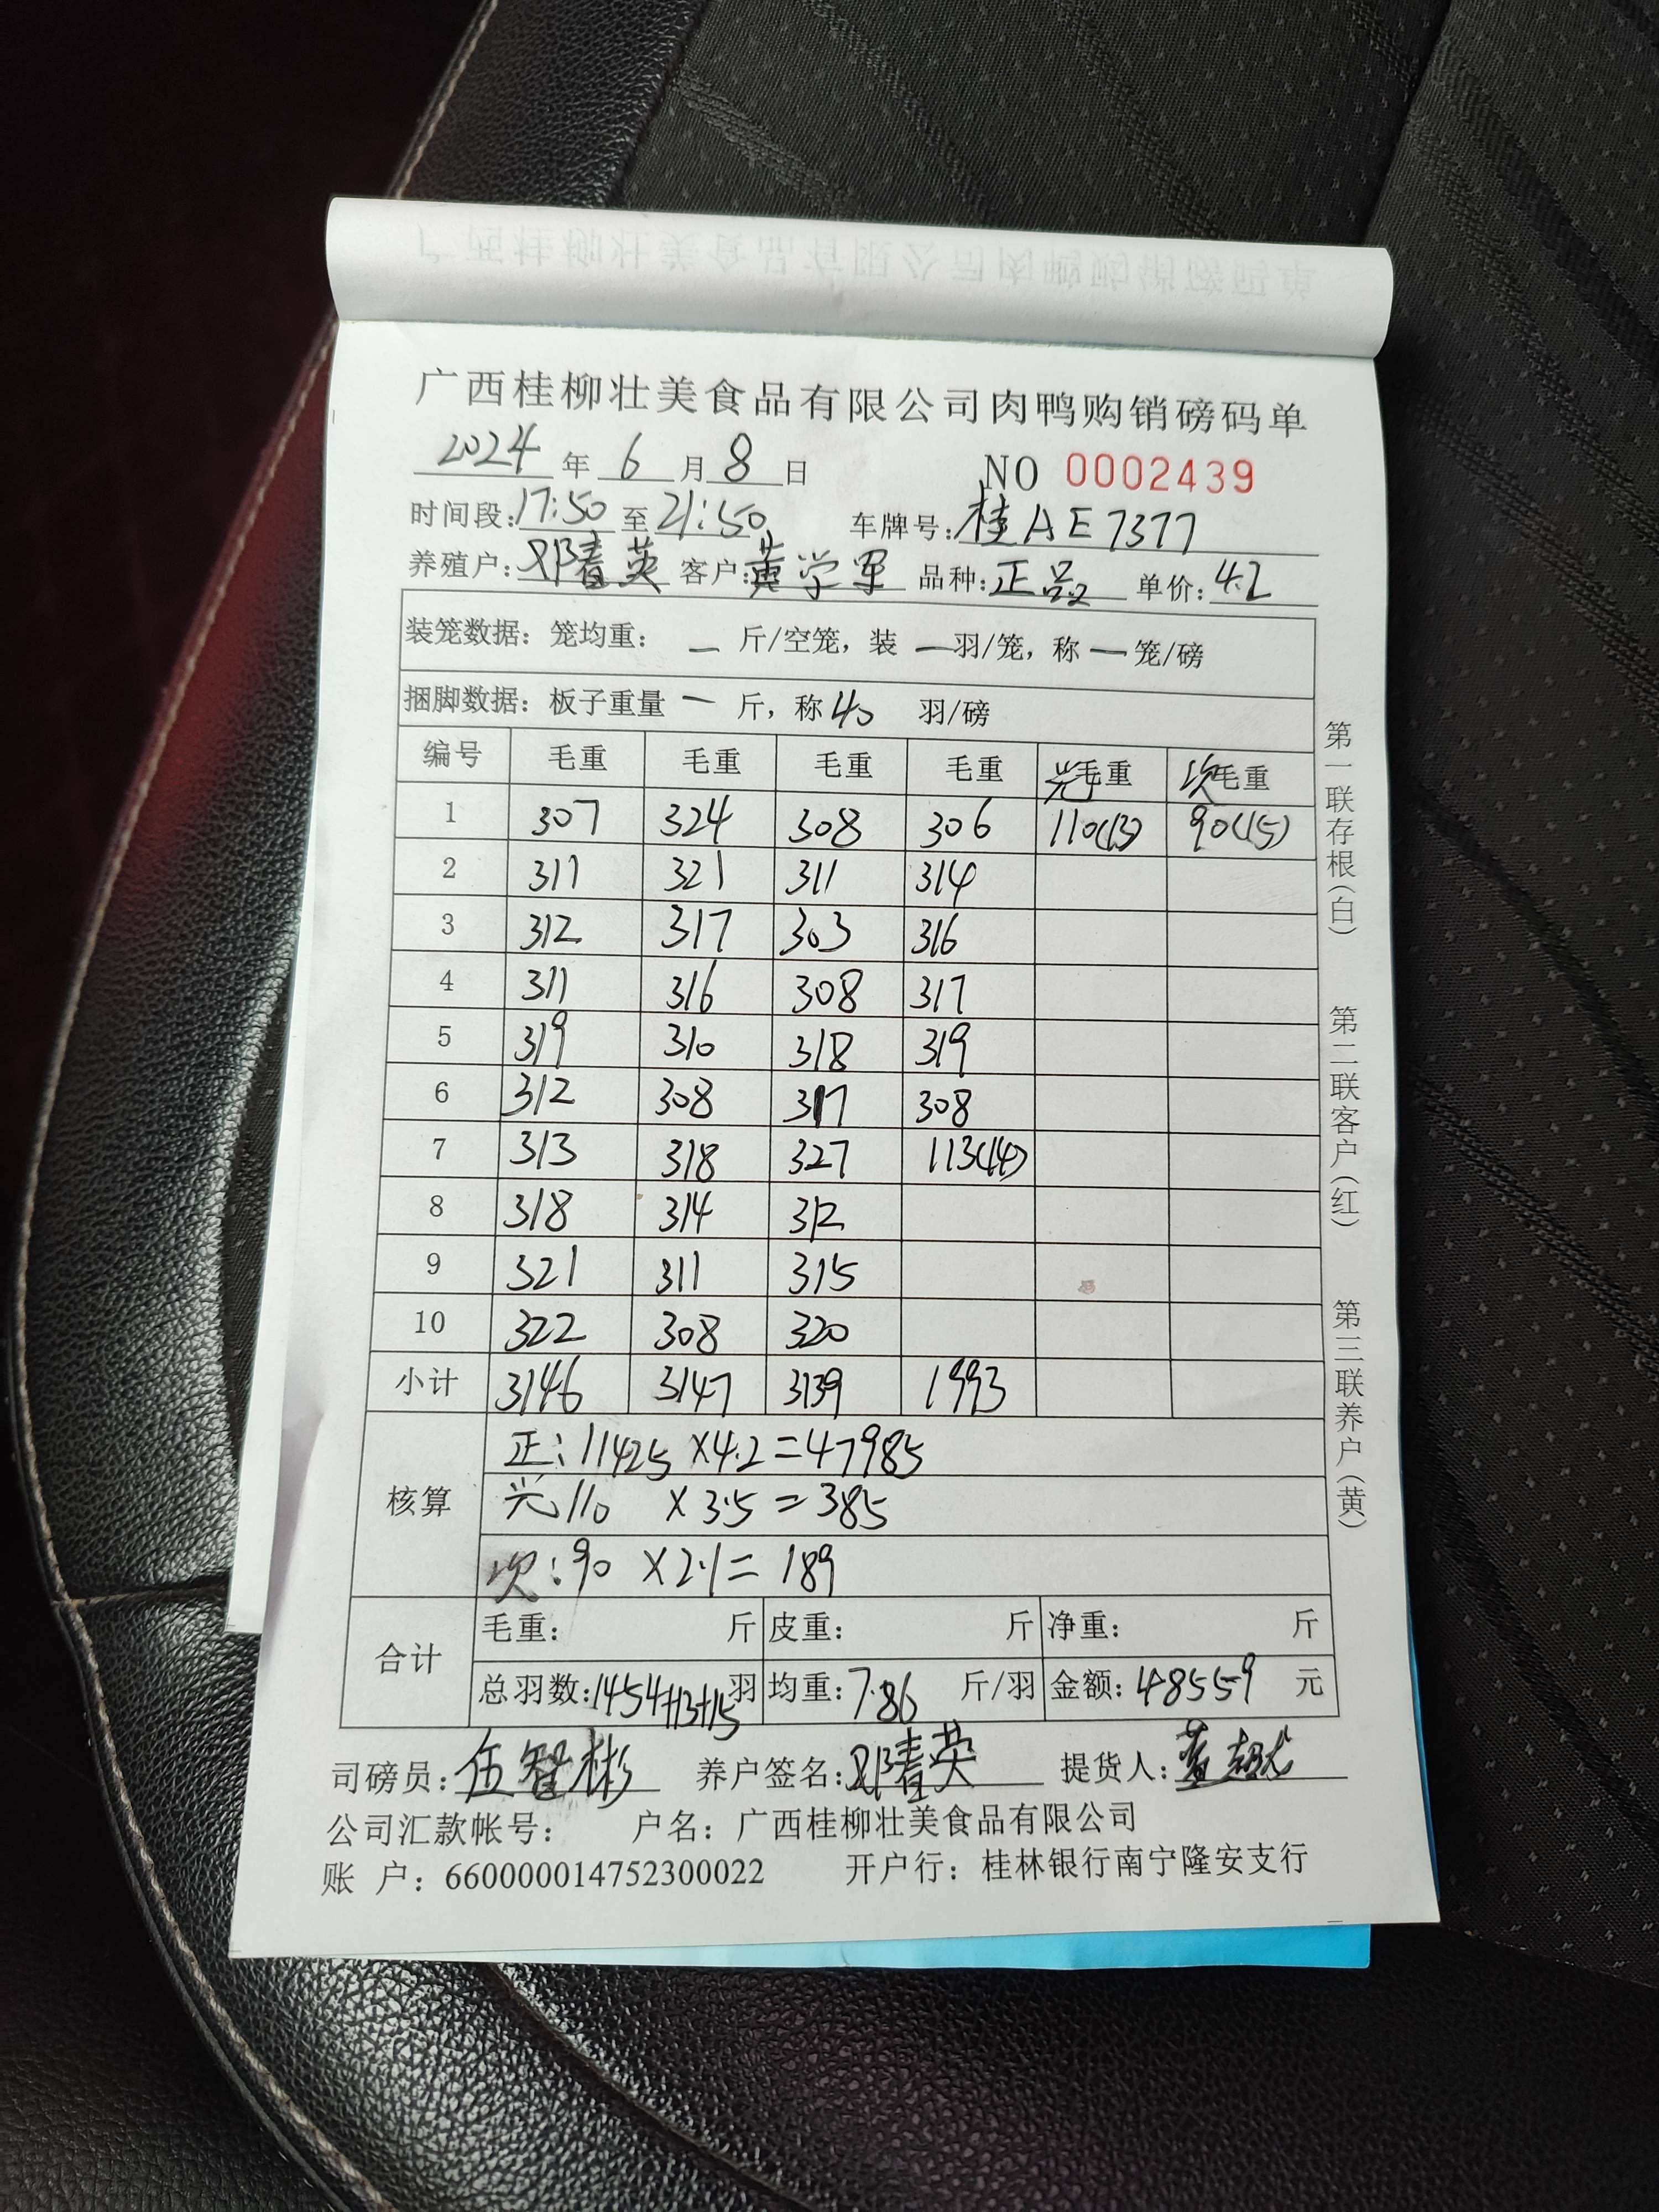 广西桂柳壮美食品有限公司肉鸭购销磅码单
2024 年 6 月 8 日 NO 0002439
时间段:17:50 至 21:50 车牌号:桂AE7377
养殖户:邓春英 客户:黄学军 品种:正品 单价:4.2
装笼数据:笼均重: — 斤/空笼,装 — 羽/笼,称 — 笼/磅
捆脚数据:板子重量 — 斤,称 40 羽/磅
编号 毛重 毛重 毛重 毛重 毛重 次毛重
1 307 324 308 306 110(13) 90(15)
2 311 321 311 314
3 312 317 303 316
4 311 316 308 317
5 319 310 318 319
6 312 308 317 308
7 313 318 327 113(14)
8 318 314 312
9 321 311 315
10 322 308 320
小计 3146 3147 3139 1993
核算
正:11425 ×4.2=47985
110 ×3.5=385
次:90 ×2.1=189
合计
毛重: 斤 皮重: 斤 净重: 斤
总羽数:1454+13+15 羽 均重:7.86 斤/羽 金额:48559 元
司磅员:伍智彬 养户签名:邓春英 提货人:
公司汇款帐号: 户名:广西桂柳壮美食品有限公司
账 户:660000014752300022 开户行:桂林银行南宁隆安支行
第一联存根(白)
第二联客户(红)
第三联养户(黄)